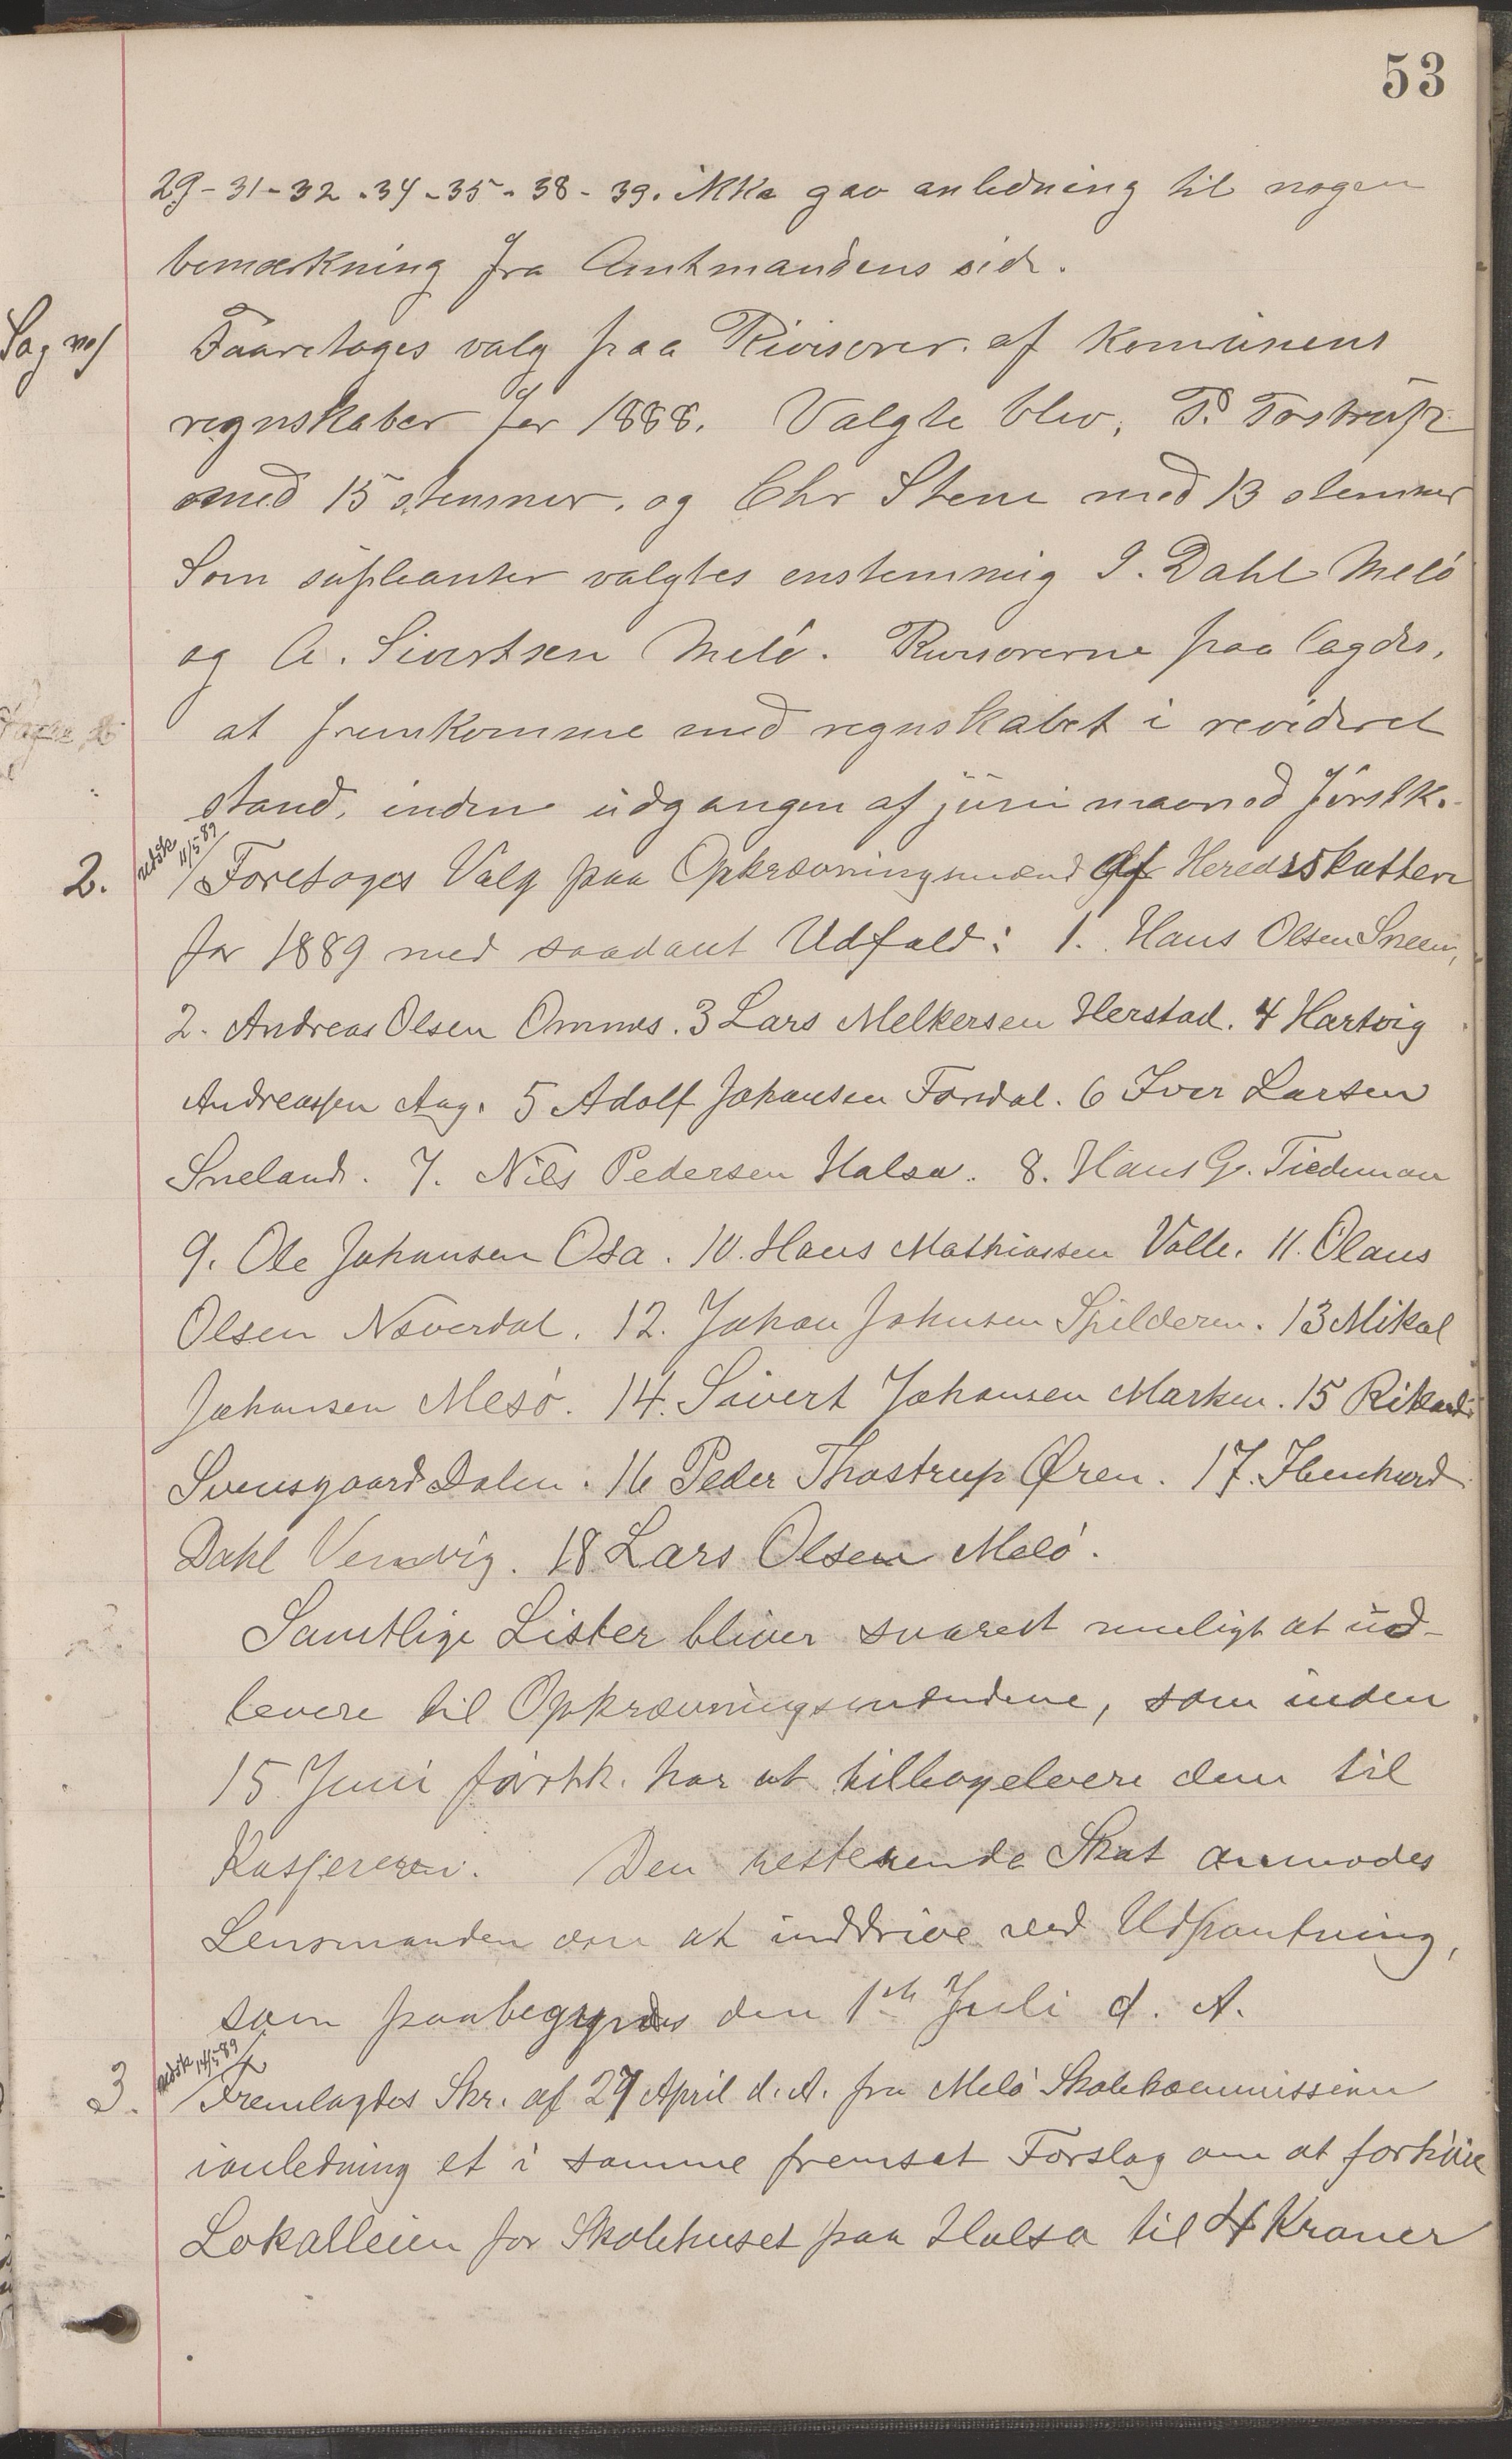 53
29-31-32-34-35-38-39. ikke gav anledning til nogen
bemærkning fra Amtmandens side.
Sag no/ Faaretoges valg paa Rivisorer. af komunens
regnskaber for 1888. Valgte blev, P. Tostrup
med 15 stemmer. og Chr Stene med 13 stemmer
Som supleanter valgtes enstemmig I. Dahl Melö
og A. Sivertsen Melö. Rivisorerne paa lagdes,
at fremkomme med regnskabet i revideret
stand, inden udgangen af juni maaned förstk.
udsk 11/5 89
2. Foretoges Valg paa Opkrævningsmænd af Heredsskatten
for 1889 med saadant Udfald: 1. Hans Olsen Sneen,
2. Andreas Olsen Ornnes. 3 Lars Melkersen Herstad. 4 Hartvig
Andreassen Aag. 5 Adolf Johansen Fondal. 6 Iver Larsen
Sneland. 7. Nils Pedersen Halsa. 8. Hans G. Tiedeman
9. Ole Johansen Osa. 10. Hans Mathiassen Valle. 11. Olaus
Olsen Næverdal. 12. Johan Johnsen Spilderen. 13 Mikal
Johansen Mesö. 14. Sivert Johansen Marken. 15 Rikard
Svensgaard Dalen. 16 Peder Thostrup Øren. 17. Ibenhard
Dahl Vendvig. 18 Lars Olsen Melö.
Samtlige Lister bliver snarest muligt at ud-
levere til Opkrævningsmændene, som inden
15 Juni förstk. har at tilbagelvere dem til
Kassereren. Den resterende Skat anmodes
Lensmanden om at inddrive ved Udpantning,
som paabegyndes den 1ste Juli d. A.
udsk 14/5 89
3. Fremlagdes Skr. af 27 April d. A. fra Melö Skolekommission
ianledning et i samme fremsat Forslag om at forhöie
Lokalleien for Skolehuset paa Halsa til 4 Kroner